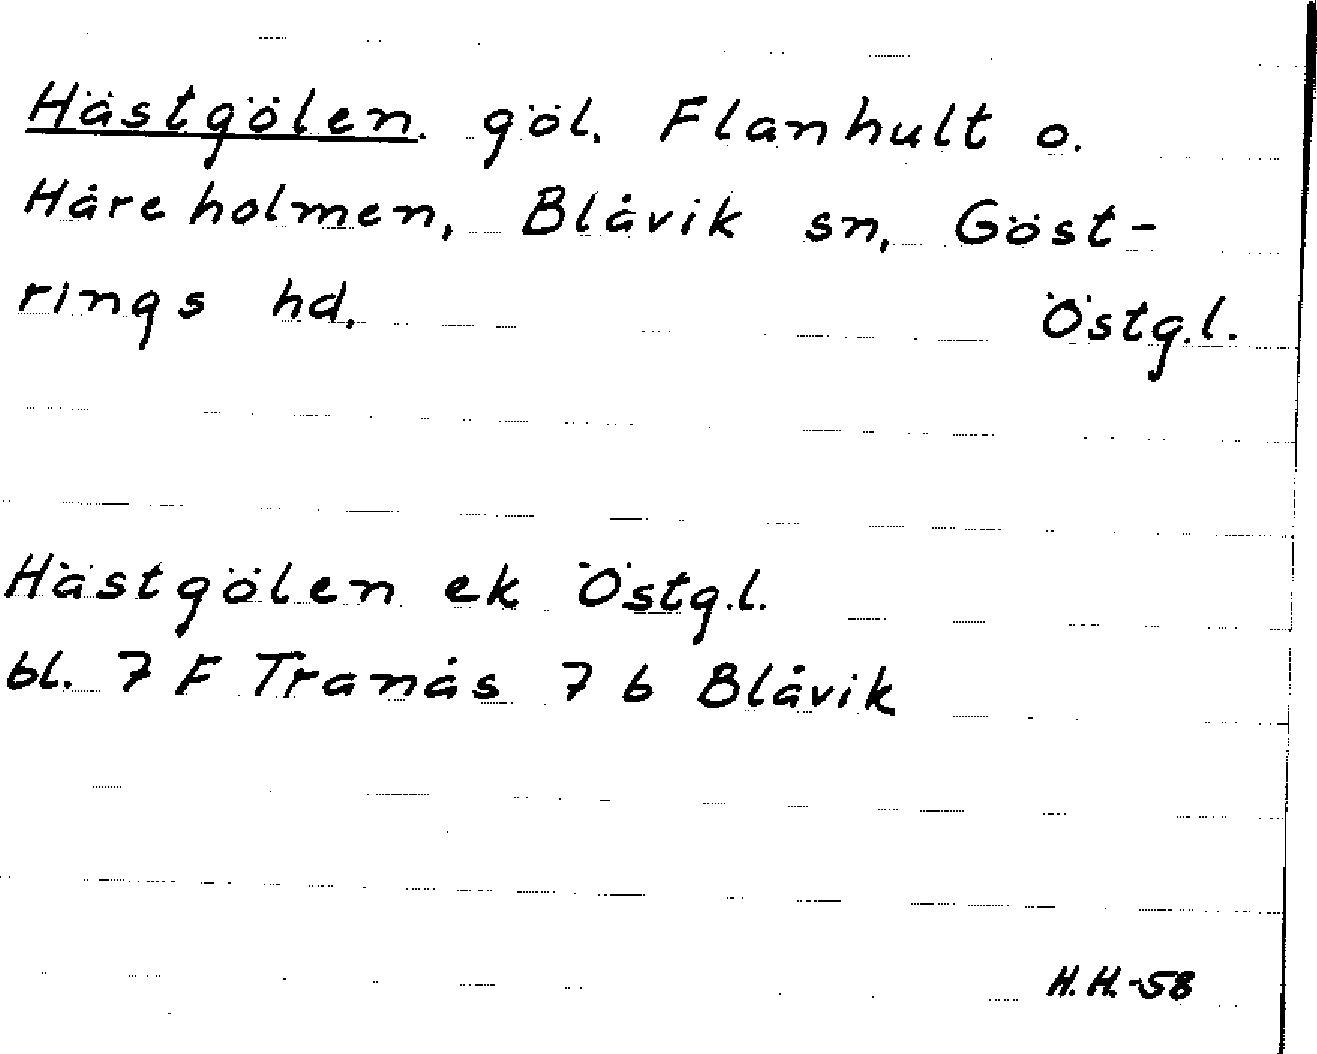 Hästgölen. göl. Flanhult o.
Håreholmen, Blåvik sn, Göst-
rings hd. Östg.l.
Hästgölen ek Östg.l.
bl. 7 F Tranås 7 b Blåvik
H.H.-58